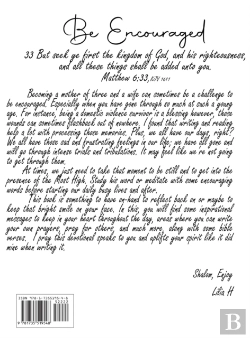 Be Encouraged
33 But seek ye first the kingdom of God, and his righteousness,
and all these things shall be added unto you.
Matthew 6:33, KJV
Becoming a mother of three and a wife can sometimes be a challenge to
be encouraged. Especially when you have gone through so much at such a young
age. For instance, being a domestic violence survivor is a blessing however, those
wounds can sometimes flashback out of nowhere. I found that writing and reading
help a lot with processing those memories. Plus, we all have our days, right?
We all have those sad and frustrating feelings in our life; we have all gone and
will go through intense trials and tribulations. It may feel like we're not going
to get through them.
At times, we just need to take that moment to be still and to get into the
presence of the Most High. Study his word or meditate with some encouraging
words before starting our daily busy lives and after.
This book is something to have on-hand to reflect back on or maybe to
keep that bright smile on your face. In this, you will find some inspirational
messages to keep in your heart throughout the day, areas where you can write
your own prayers, pray for others, and much more, along with some bible
verses. I pray this devotional speaks to you and uplifts your spirit like it did
mine when writing it.
Shalom, Enjoy
Lilia H
B